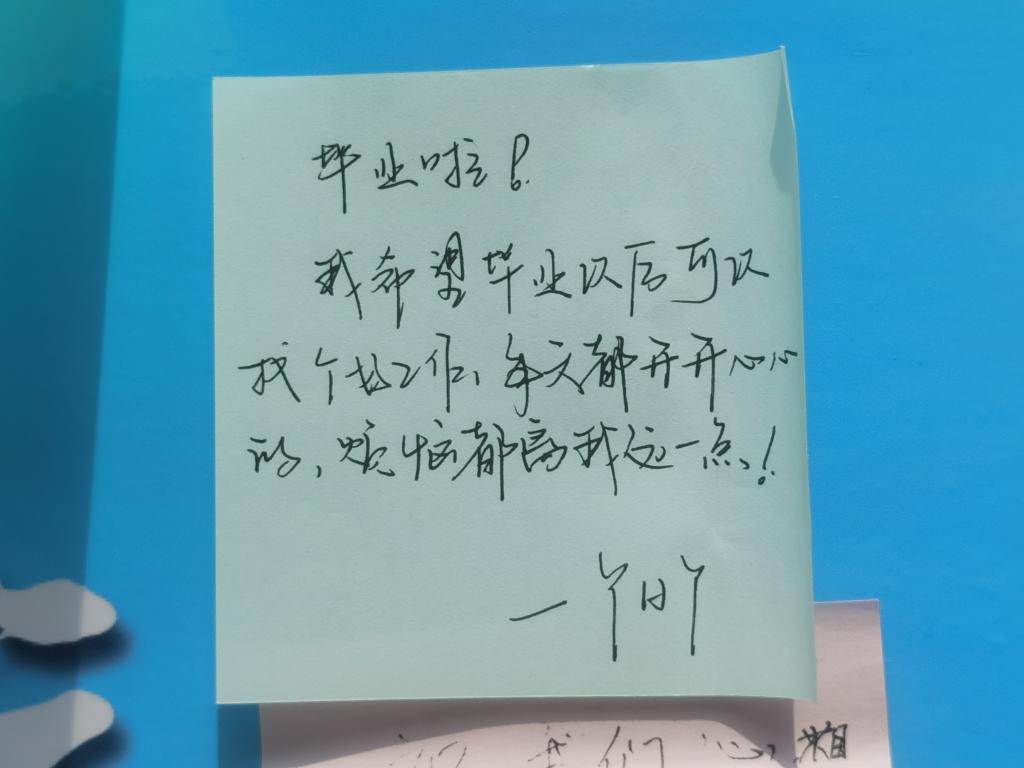 毕业啦!
我希望毕业以后可以
找个好工作、每天都开开心心
的,烦恼都离我远一点!
我们心